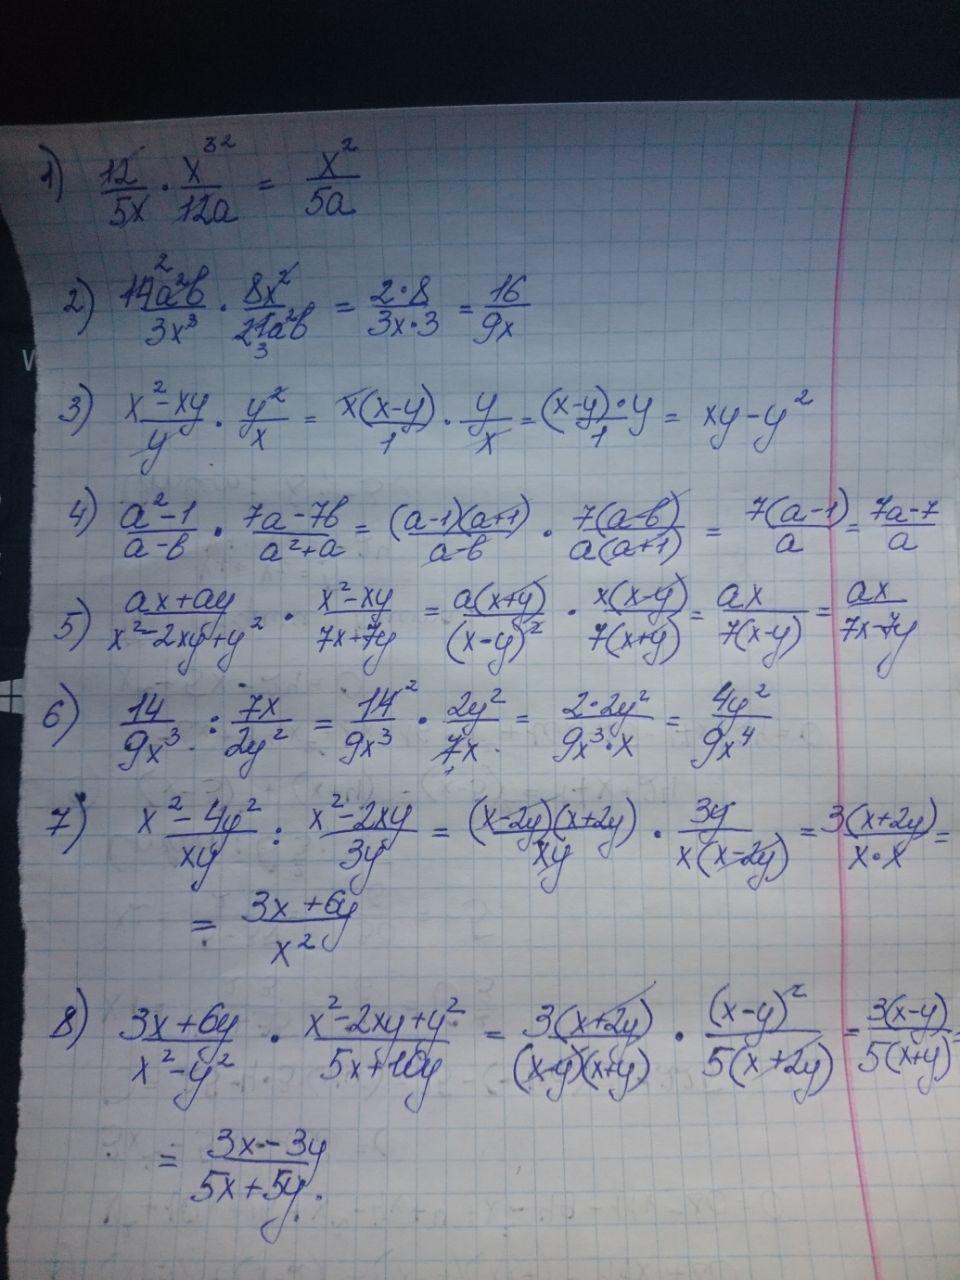 1) 12/5x · x³²/12a = x²/5a
2) 14²a²b/3x³ · 8x²/21₃a²b = 2·8/3x·3 = 16/9x
3) x²-xy/y · y²/x = x(x-y)/1 · y/x = (x-y)·y/1 = xy-y²
4) a²-1/a-b · 7a-7b/a²+a = (a-1)(a+1)/a-b · 7(a-b)/a(a+1) = 7(a-1)/a = 7a-7/a
5) ax+ay/x²-2xy+y² · x²-xy/7x+7y = a(x+y)/(x-y)² · x(x-y)/7(x+y) = ax/7(x-y) = ax/7x-7y
6) 14/9x³ : 7x/2y² = 14²/9x³ · 2y²/7₁x = 2·2y²/9x³·x = 4y²/9x⁴
7) x²-4y²/xy : x²-2xy/3y = (x-2y)(x+2y)/xy · 3y/x(x-2y) = 3(x+2y)/x·x =
= 3x+6y/x²
8) 3x+6y/x²-y² · x²-2xy+y²/5x+10y = 3(x+2y)/(x-y)(x+y) · (x-y)²/5(x+2y) = 3(x-y)/5(x+y) =
= 3x-3y/5x+5y.